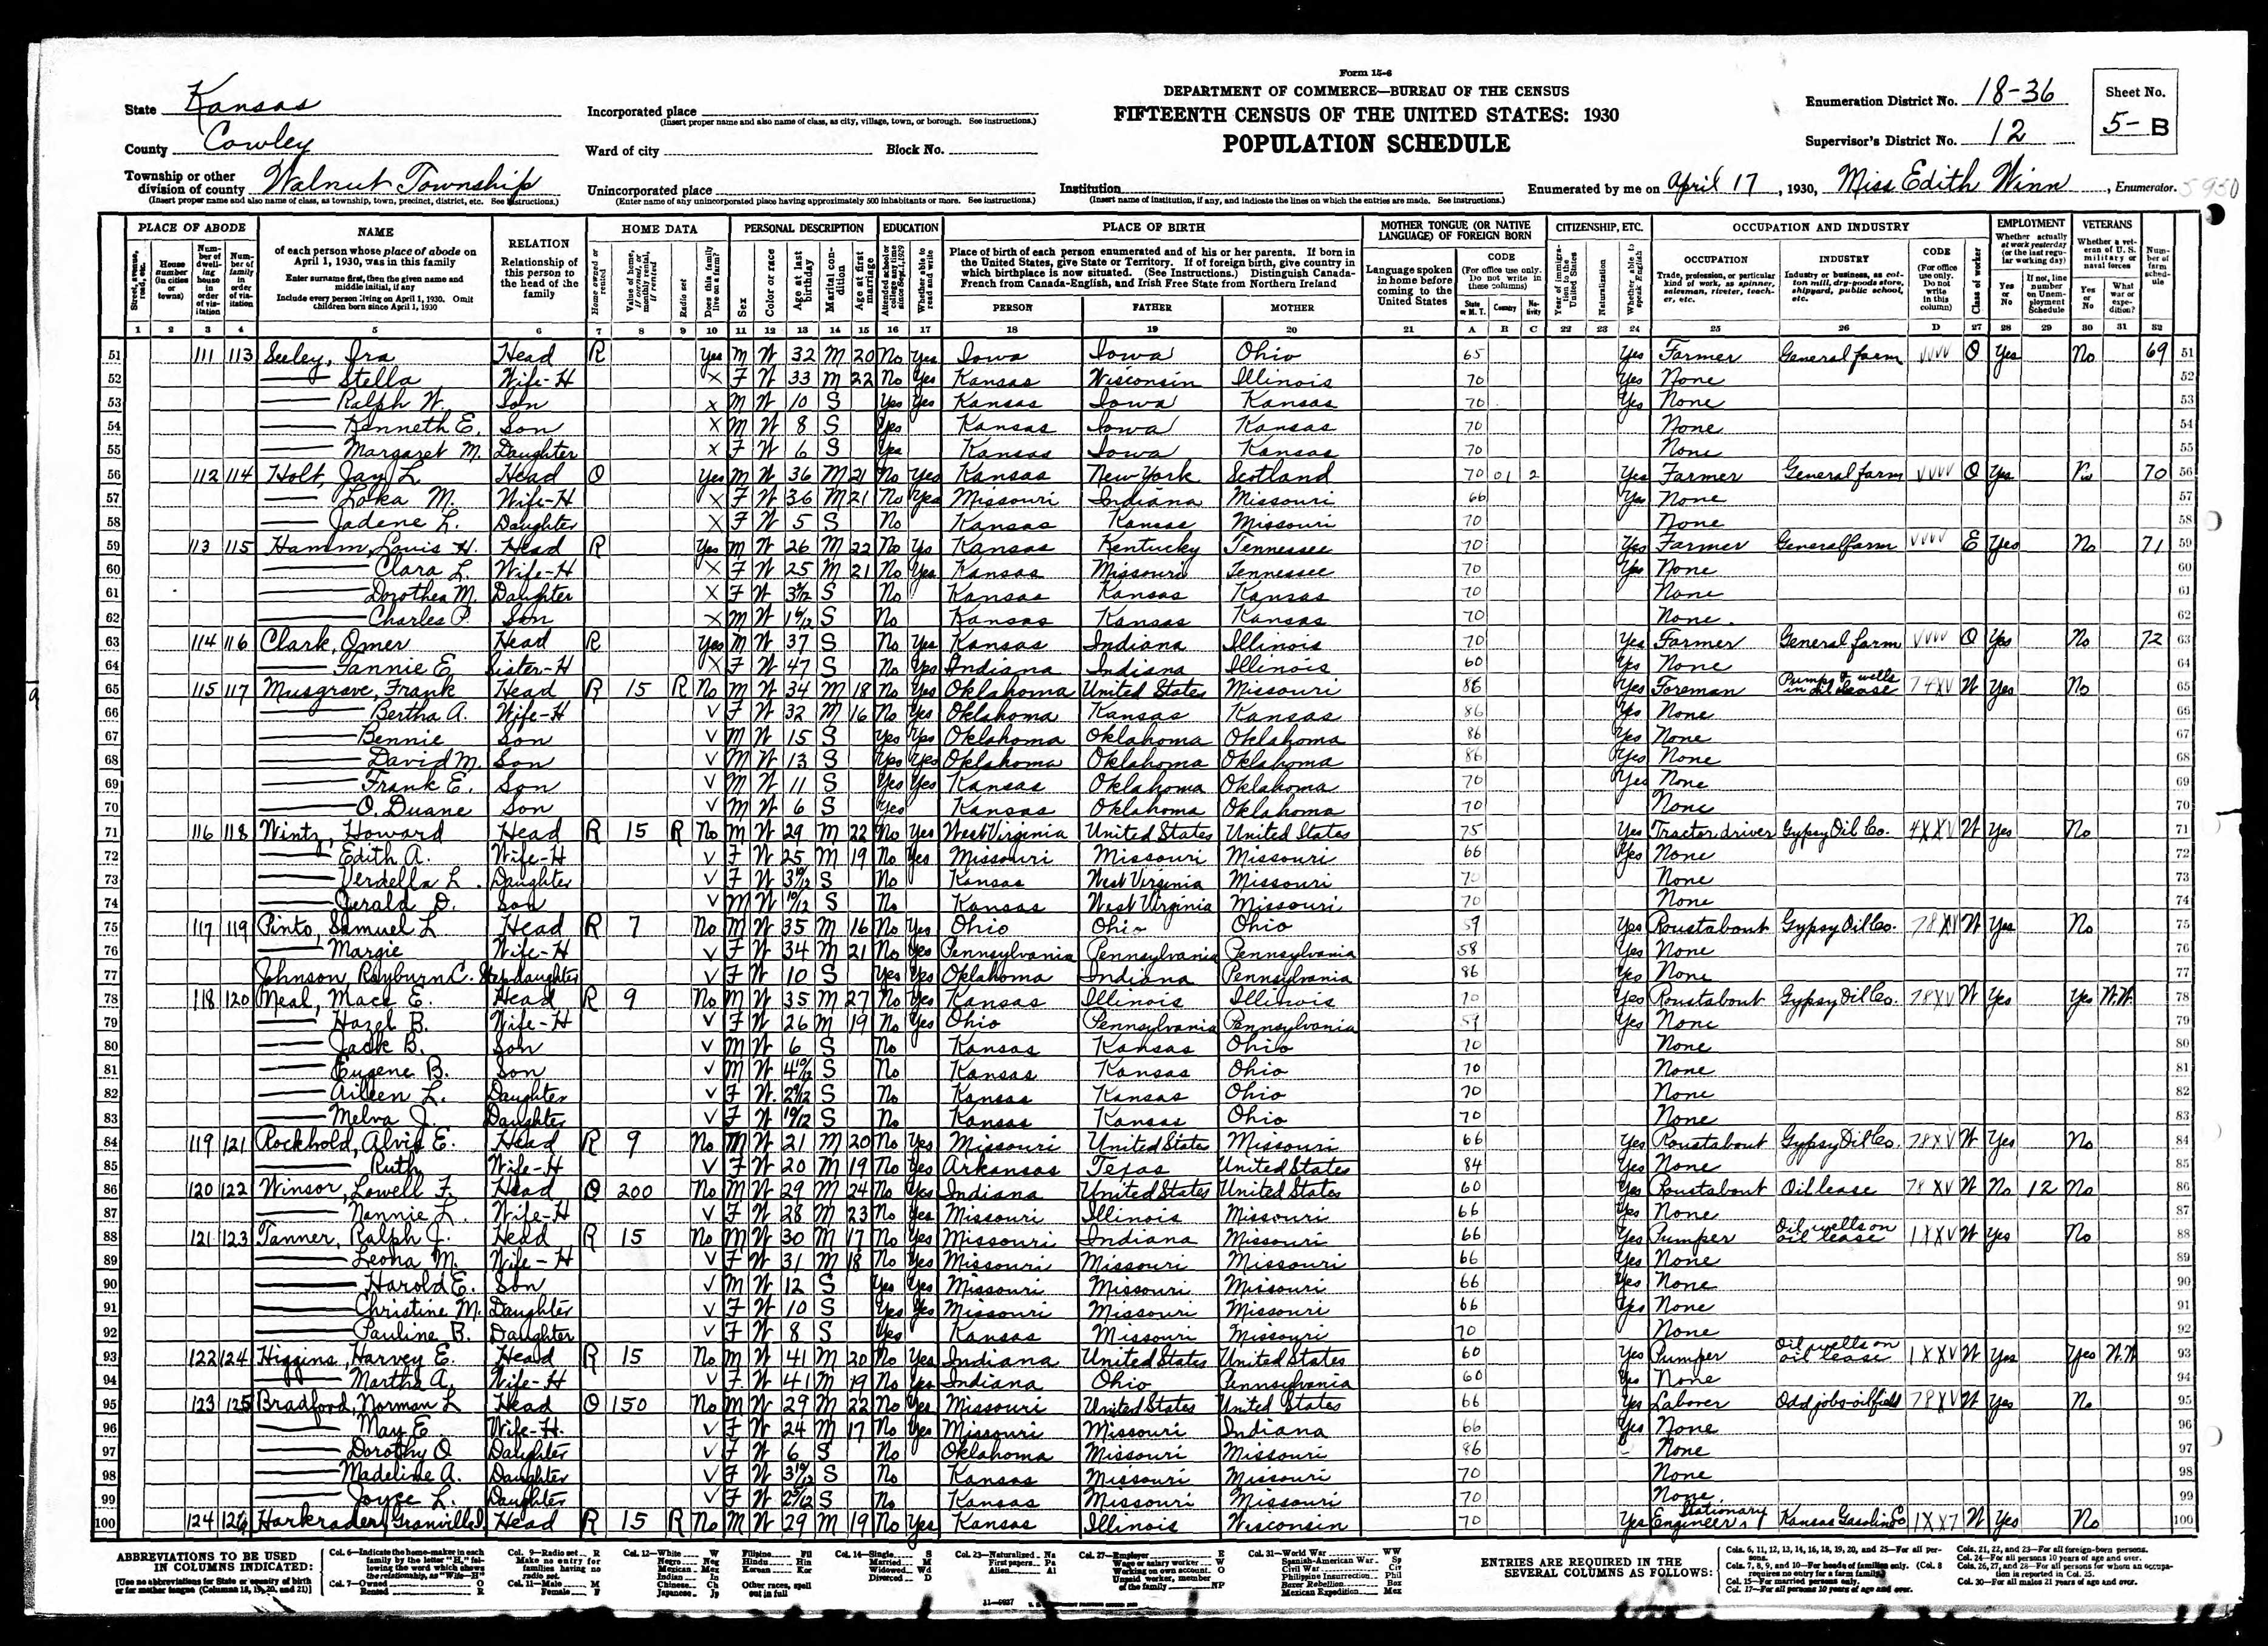 Form 15-6
DEPARTMENT OF COMMERCE—BUREAU OF THE CENSUS
FIFTEENTH CENSUS OF THE UNITED STATES: 1930
POPULATION SCHEDULE
State Kansas
County Cowley
Township or other division of county Walnut Township
(Insert proper name and also name of class, as township, town, precinct, district, etc. See instructions.)
Incorporated place
(Insert proper name and also name of class, as city, village, town, or borough. See instructions.)
Ward of city Block No.
Unincorporated place
(Enter name of any unincorporated place having approximately 500 inhabitants or more. See instructions.)
Institution
(Insert name of institution, if any, and indicate the lines on which the entries are made. See instructions.)
Enumeration District No. 18-36
Supervisor's District No. 12
Sheet No. 5-B
Enumerated by me on April 17, 1930, Miss Edith Winn, Enumerator.
PLACE OF ABODE NAME RELATION HOME DATA PERSONAL DESCRIPTION EDUCATION PLACE OF BIRTH MOTHER TONGUE (OR NATIVE LANGUAGE) OF FOREIGN BORN CITIZENSHIP, ETC. OCCUPATION AND INDUSTRY EMPLOYMENT VETERANS
of each person whose place of abode on April 1, 1930, was in this family
Enter surname first, then the given name and middle initial, if any
Include every person living on April 1, 1930. Omit children born since April 1, 1930
Relationship of this person to the head of the family
Place of birth of each person enumerated and of his or her parents. If born in the United States, give State or Territory. If of foreign birth, give country in which birthplace is now situated. (See Instructions.) Distinguish Canada-French from Canada-English, and Irish Free State from Northern Ireland
PERSON FATHER MOTHER
Language spoken in home before coming to the United States
1 2 3 4 5 6 7 8 9 10 11 12 13 14 15 16 17 18 19 20 21 A B C 22 23 24 25 26 D 27 28 29 30 31 32
51 111 113 Seeley, Ira Head R Yes M W 32 M 20 No Yes Iowa Iowa Ohio 65 Yes Farmer General farm VVVV O Yes No 69 51
52 Stella Wife-H X F W 33 M 22 No Yes Kansas Wisconsin Illinois 70 Yes None 52
53 Ralph W. Son X M W 10 S Yes Yes Kansas Iowa Kansas 70 Yes None 53
54 Kenneth E. Son X M W 8 S Yes Kansas Iowa Kansas 70 None 54
55 Margaret M. Daughter X F W 6 S Yes Kansas Iowa Kansas 70 None 55
56 112 114 Holt, Jay L Head O Yes M W 36 M 21 No Yes Kansas New York Scotland 70 01 2 Yes Farmer General farm VVVV O Yes No 70 56
57 M. Wife-H X F W 36 M 21 No Yes Missouri Indiana Missouri 66 Yes None 57
58 Jadene L. Daughter X F W 5 S No Kansas Kansas Missouri 70 None 58
59 113 115 Hamm, Louis H. Head R Yes M W 26 M 22 No Yes Kansas Kentucky Tennessee 70 Yes Farmer General farm VVVV E Yes No 71 59
60 Clara L. Wife-H X F W 25 M 21 No Yes Kansas Missouri Tennessee 70 Yes None 60
61 Dorothea M. Daughter X F W S No Kansas Kansas Kansas 70 None 61
62 Charles P. Son X M W S No Kansas Kansas Kansas 70 None 62
63 114 116 Clark, Omer Head R Yes M W 37 S No Yes Kansas Indiana Illinois 70 Yes Farmer General farm VVVV O Yes No 72 63
64 Fannie E. Sister-H X F W 47 S No Yes Indiana Indiana Illinois 60 Yes None 64
65 115 117 Musgrave, Frank Head R 15 R No M W 34 M 18 No Yes Oklahoma United States Missouri 86 Yes Foreman Pumps & wells in oil lease 74XV W Yes No 65
66 Bertha A. Wife-H V F W 32 M 16 No Yes Oklahoma Kansas Kansas 86 Yes None 66
67 Bennie Son V M W 15 S Yes Yes Oklahoma Oklahoma Oklahoma 86 Yes None 67
68 David M. Son V M W 13 S Yes Yes Oklahoma Oklahoma Oklahoma 86 Yes None 68
69 Frank E. Son V M W 11 S Yes Yes Kansas Oklahoma Oklahoma 70 Yes None 69
70 O. Duane Son V M W 6 S Yes Kansas Oklahoma Oklahoma 70 None 70
71 116 118 Wintz, Howard Head R 15 R No M W 29 M 22 No Yes West Virginia United States United States 75 Yes Tractor driver Gypsy Oil Co. 4XXV W Yes No 71
72 Edith A. Wife-H V F W 25 M 19 No Yes Missouri Missouri Missouri 66 Yes None 72
73 Verdella L. Daughter V F W 3 10/12 S No Kansas West Virginia Missouri 70 None 73
74 Gerald D. Son V M W S No Kansas West Virginia Missouri 70 None 74
75 117 119 Pinto, Samuel L Head R 7 No M W 35 M 16 No Yes Ohio Ohio Ohio 59 Yes Roustabout Gypsy Oil Co. 78XV W Yes No 75
76 Margie Wife-H V F W 34 M 21 No Yes Pennsylvania Pennsylvania Pennsylvania 58 Yes None 76
77 Johnson, Rayburn C. Stepdaughter V F W 10 S Yes Yes Oklahoma Indiana Pennsylvania 86 Yes None 77
78 118 120 Neal, Mace E. Head R 9 No M W 35 M 27 No Yes Kansas Illinois Illinois 70 Yes Roustabout Gypsy Oil Co. 78XV W Yes Yes W.W. 78
79 Hazel B. Wife-H V F W 26 M 19 No Yes Ohio Pennsylvania Pennsylvania 59 Yes None 79
80 Jack B. Son V M W 6 S No Kansas Kansas Ohio 70 None 80
81 Eugene B. Son V M W S No Kansas Kansas Ohio 70 None 81
82 Aileen L. Daughter V F W S No Kansas Kansas Ohio 70 None 82
83 Melva J. Daughter V F W S No Kansas Kansas Ohio 70 None 83
84 119 121 Rockhold, Alvie E. Head R 9 No M W 21 M 20 No Yes Missouri United States Missouri 66 Yes Roustabout Gypsy Oil Co. 78XV W Yes No 84
85 Ruth Wife-H V F W 20 M 19 No Yes Arkansas Texas United States 84 Yes None 85
86 120 122 Winsor, Lowell F. Head O 200 No M W 29 M 24 No Yes Indiana United States United States 60 Yes Roustabout Oil lease 78XV W No 12 No 86
87 Nannie L. Wife-H V F W 28 M 23 No Yes Missouri Illinois Missouri 66 Yes None 87
88 121 123 Tanner, Ralph J. Head R 15 No M W 30 M 17 No Yes Missouri Indiana Missouri 66 Yes Pumper Oil wells on oil lease 1XXV W Yes No 88
89 Leona M. Wife-H V F W 31 M 18 No Yes Missouri Missouri Missouri 66 Yes None 89
90 Harold E. Son V M W 12 S Yes Yes Missouri Missouri Missouri 66 Yes None 90
91 Christine M. Daughter V F W 10 S Yes Yes Missouri Missouri Missouri 66 Yes None 91
92 Pauline B. Daughter V F W 8 S Yes Kansas Missouri Missouri 70 None 92
93 122 124 Higgins, Harvey E. Head R 15 No M W 41 M 20 No Yes Indiana United States United States 60 Yes Pumper Oil wells on oil lease 1XXV W Yes Yes W.W 93
94 Martha A. Wife-H V F W 41 M 19 No Yes Indiana Ohio Pennsylvania 60 Yes None 94
95 123 125 Bradford, Norman L Head O 150 No M W 29 M 22 No Yes Missouri United States United States 66 Yes Laborer Odd jobs-oilfield 78XV W Yes No 95
96 May E Wife-H. V F W 24 M 17 No Yes Missouri Missouri Indiana 66 Yes None 96
97 Dorothy O Daughter V F W 6 S No Oklahoma Missouri Missouri 86 None 97
98 Madeline A. Daughter V F W 3 10/12 S No Kansas Missouri Missouri 70 None 98
99 Joyce L. Daughter V F W S No Kansas Missouri Missouri 70 None 99
100 124 126 Harkrader, Granville Head R 15 R No M W 29 M 19 No Yes Kansas Illinois Wisconsin 70 Yes Stationary Engineer Kansas Gasoline Co 1XX7 W Yes No 100
ABBREVIATIONS TO BE USED IN COLUMNS INDICATED:
[Use no abbreviations for State or country of birth or for mother tongue (Columns 18, 19, 20, and 21)]
Col. 6—Indicate the home-maker in each family by the letter "H," following the word which shows the relationship, as "Wife—H"
Col. 7—Owned O
Rented R
Col. 9—Radio set R
Make no entry for families having no radio set.
Col. 11—Male M
Female F
Col. 12—White W
Negro Neg
Mexican Mex
Indian In
Chinese Ch
Japanese Jp
Filipino Fil
Hindu Hin
Korean Kor
Other races, spell out in full
Col. 14—Single S
Married M
Widowed Wd
Divorced D
Col. 23—Naturalized Na
First papers Pa
Alien Al
Col. 27—Employer E
Wage or salary worker W
Working on own account O
Unpaid worker, member of the family NP
Col. 31—World War WW
Spanish-American War Sp
Civil War Civ
Philippine Insurrection Phil
Boxer Rebellion Box
Mexican Expedition Mex
ENTRIES ARE REQUIRED IN THE SEVERAL COLUMNS AS FOLLOWS:
Cols. 6, 11, 12, 13, 14, 16, 18, 19, 20, and 25—For all persons.
Cols. 7, 8, 9, and 10—For heads of families only. (Col. 8 requires no entry for a farm family.)
Col. 15—For married persons only.
Col. 17—For all persons 10 years of age and over.
Cols. 21, 22, and 23—For all foreign-born persons.
Col. 24—For all persons 10 years of age and over.
Cols. 26, 27, and 28—For all persons for whom an occupation is reported in Col. 25.
Col. 30—For all males 21 years of age and over.